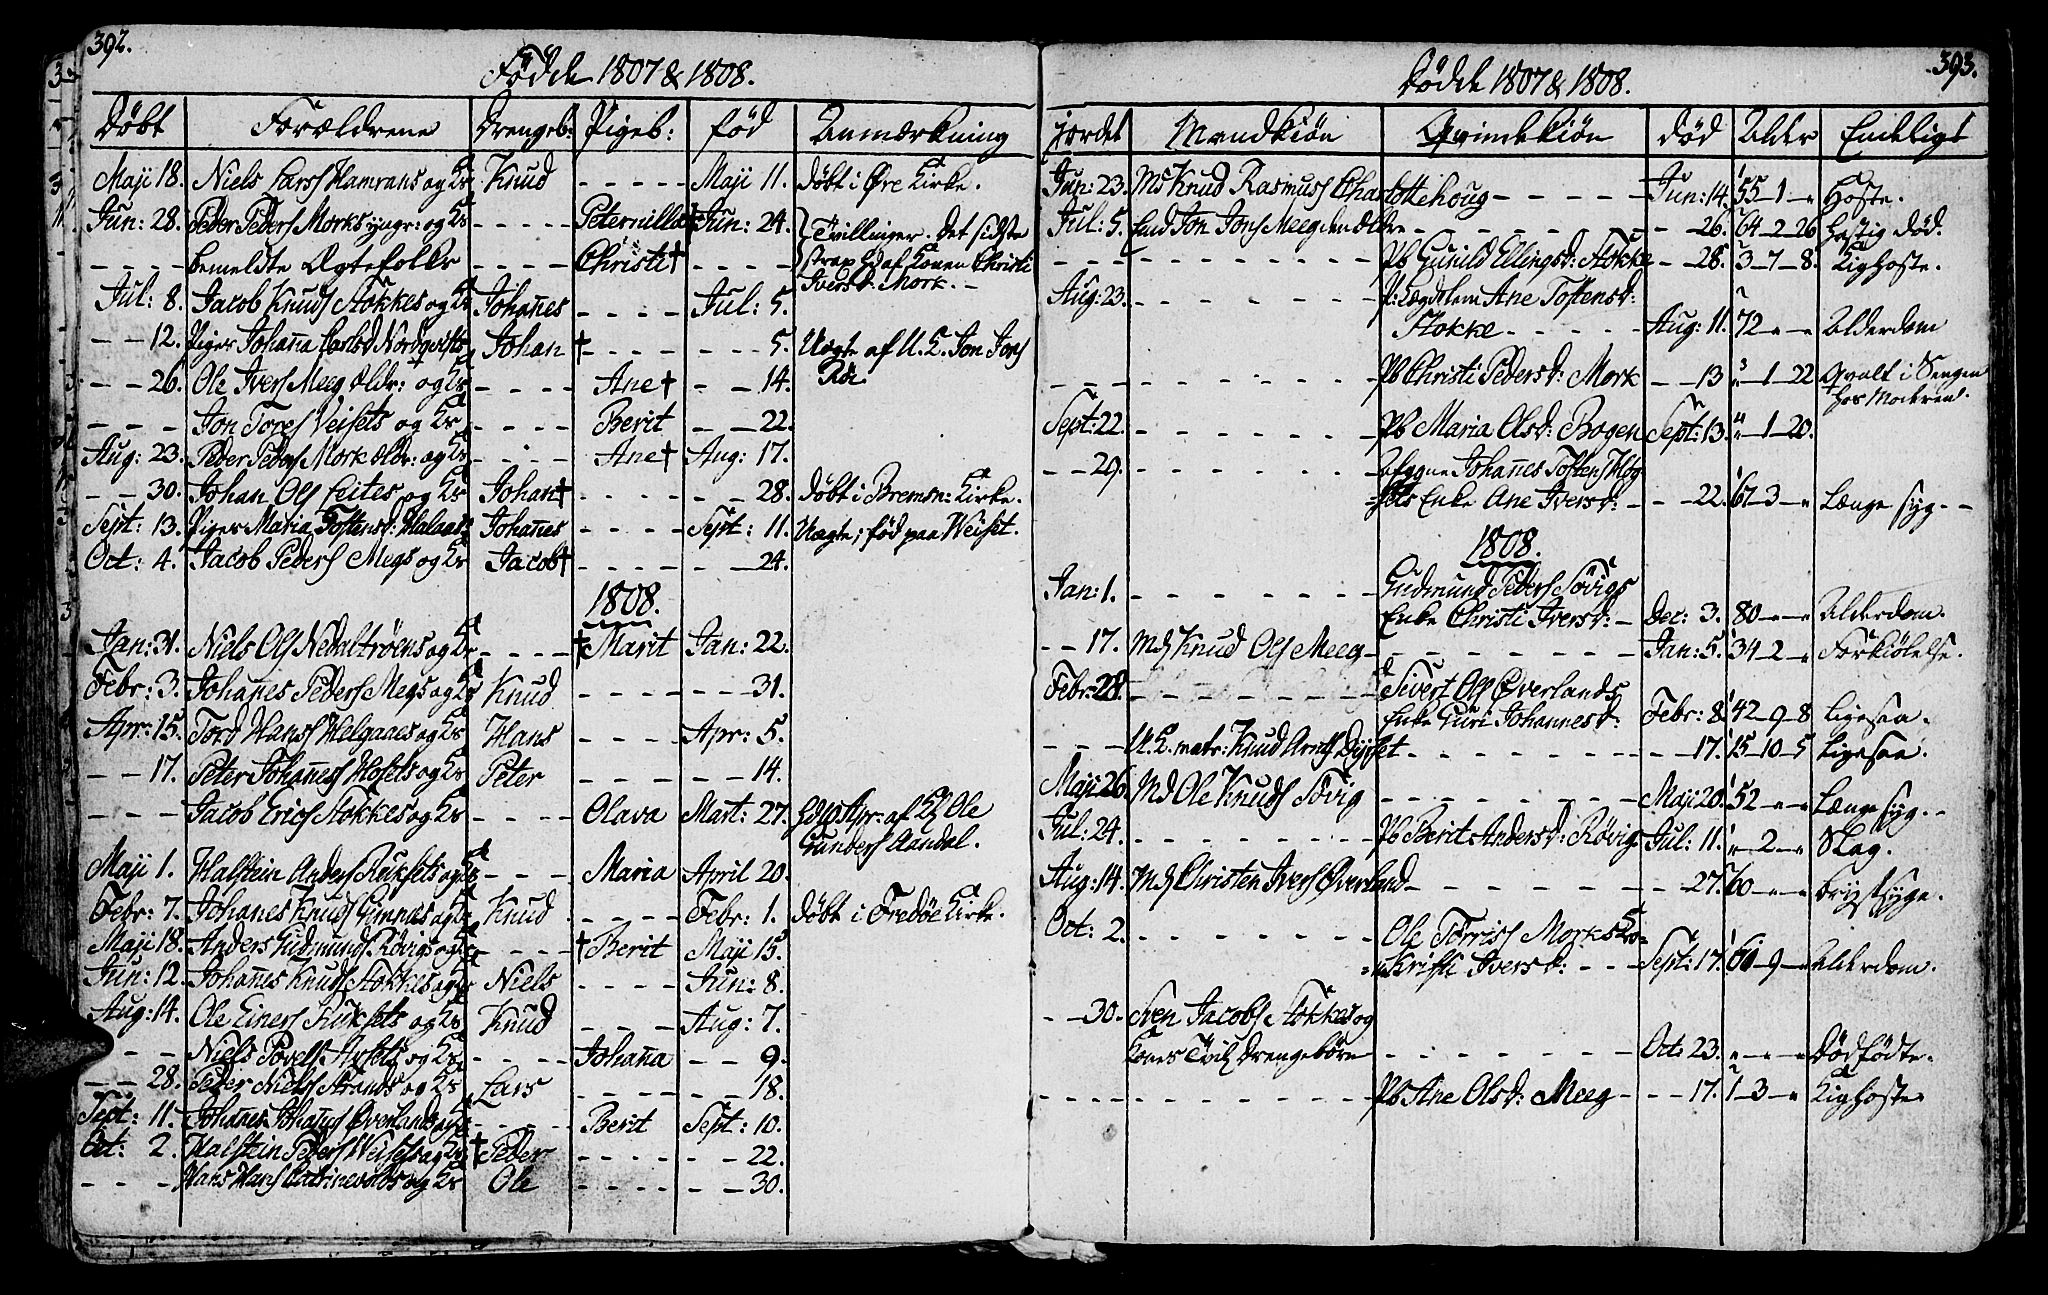 392.
Fødde 1807 & 1808.
Døbt Forældrene Drengeb: Pigeb: fød Anmærkning
Maji 18. Niels Larss Hamrans og Kr Knud - - - - - Maji 11. Døbt i Øre Kirke.
Jun: 28. Peder Peders Morks yngr: og Kr - - - - Peternilla Jun: 24. Tvillinger. Det sidste
- - - - bemeldte Ægtefolks - - - - Christi † - - - - strax hd af Konen Christi
Iversd: Mork. -
Jul: 8. Jacob Knuds Stokkes og Kr Johannes - - - - Jul: 5.
- - 12. Piger Johanna Carlsd Nordqvists Johan † - - - - - - - 5. Uægte af U. K. Jon Jons
- - 26. Ole Ivers Meeg ældr: og Kr - - - - Ane † - - 14.
- - - Jon Tores Veisets og Kr - - - - Berit - - 22.
Aug: 23. Peder Peders Mork ældr: og Kr - - - - Ane † Aug: 17.
- - 30. Johan Ols Leites og Kr Johan † - - - - - - 28. Døbt i Bremsn: Kirke.
Sept: 13. Piger Maria Tostensd: Halaas: Johannes - - - - Sept: 11. Uægte; fød paa Weiset.
Oct: 4. Jacob Peders Megs og Kr Jacob † - - 24.
1808.
Jan: 31. Niels Ols Nedaltrøens og Kr - - - - † Marit Jan: 22.
Febr: 3. Johanes Peders Megs og Kr Knud - - - - - - 31.
Apr: 15. Tord Hanss Helgaaes og Kr Hans - - - Apr: 5.
- - 17. Peter Johanness Hosets og Kr Peter - - - - - - 14.
- - - - Jacob Erics Stokkes og Kr - - - - Olava Mart: 27. hd 10 Apr: af Kl Ole
Gunders Aandal.
Maji 1. Halstein Anders Ruksets og Kr - - - Maria April 20.
Febr: 7. Johanes Knuds Gimnes og Kr Knud - - - - Febr: 1. Døbt i Fredøe Kirke.
Maji 18. Anders Gudmunds Røvigs og Kr - - - † Berit Maji 15.
Jun: 12. Johannes Knuds Stokkes og Kr Niels - - - - Jun: 8.
Aug: 14. Ole Einers Ruksets og Kr Knud - - - Aug: 7.
- - - Niels Povels Arsets og Kr - - - - Johanna - - 9.
- - 28. Peder Niels Strands og Kr Lars - - - - - - 18.
Sept: 11. Johannes Johanss Øverlands og Kr - - - - Berit Sept: 10.
Oct: 2. Halstein Peders Weisets og Kr † Peder - - - - - - 22.
- - - Hans Hans Catrinevolds og Kr Ole - - - - - - 30.
393.
Dødde 1807 & 1808.
jordet Mandkiøn Qvindekiøn død Alder Endeligt
Jun: 23. Md Knud Rasmuss Charlottehoug - - - - - Jun: 14. 55 - 1 - " Hoste.
Jul: 5. Emd Jon Jons Meeg den ældre - - - - - - - 26. 64 - 2 - 26 Hastig død.
- - - - - - - - - Pb Gunild Ellingsd: Stokke - - 28. 3 - 7 - 8. Kighoste.
Aug: 23. - - - - - - P: Lægdelem Ane Tostensd:
Stokke - - - - - Aug: 11. 72 - " - " Alderdom
- - - - - - - - - Pb Christi Pedersd: Mork - - 13 " - 1 - 22 Qvalt i Sengen
hos Moderen.
Sept: 22. - - - - - - Pb Maria Olsd: Bogen Sept: 13. " - 1 - 20.
- - 29. - - - - - - Afgne Johannes Tostens Høg-
sets Enke Ane Iversd: - - - 22. 67 - 3 - " Længe syg - -
1808.
Jan: 1. - - - - - - - Gudmund Peders Søvigs
Enke Christi Iversd: - Dec: 3. 80 - " - " Alderdom.
- - 17. Md Knud Ols Meeg - - - - - - - Jan: 5. 34 - 2 - " Forkiølelse.
Febr: 28. - - - - - - - Sivert Ols Øverlands
Enke Guri Johannesd: Febr: 8. 42 - 9 - 8 Ligesaa.
- - - U. K. matr: Knud Arnts Dyrset - - - - - - - 17. 15 - 10 - 5 Ligesaa.
Maji 26. Md Ole Knuds Søvig - - - - - - - Maji 20. 52 - " - " Længe syg. -
Jul: 24. - - - - - - - Pb Berit Andersd: Røvigs Jul: 11. " - 2 - " Slag.
Aug: 14. Md Christen Ivers Øverland - - - - - - - - 27. 60 - " - " Brystsyge.
Oct: 2. - - - - - - - Ole Torriss Morks Ko=
=n Kristi Iversd: - - - Sept: 17. 60 - 9 - " Alderdom.
- - 30. Sven Jacobs Stokkes og
Kones Tvil Drengebørn - - - - - - - Oct: 23. " - " - " Dødfødte.
- - - - - - - - - - - Pb Ane Olsd: Meeg - - - - 17. 1 - 3 - " Kighoste